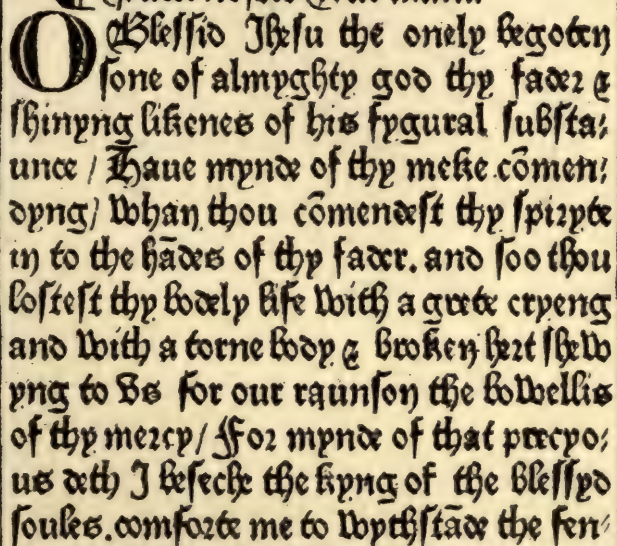 O Blessid Ihesu the onely begoten
sone of almyghty god thy fader &
shinyng likenes of his fygural substa⸗
unce / Haue mynde of thy meke cōmen⸗
dyng/ whan thou cōmendest thy spiryte
in to the hādes of thy fader. and soo thou
lostest thy bodely life with a grete cryeng
and with a torne body & broken hert shew
yng to vs for our raunson the bowellis
of thy mercy/ For mynde of that precyo⸗
us deth I beseche the kyng of the blessyd
soules. comforte me to wythstāde the fen⸗